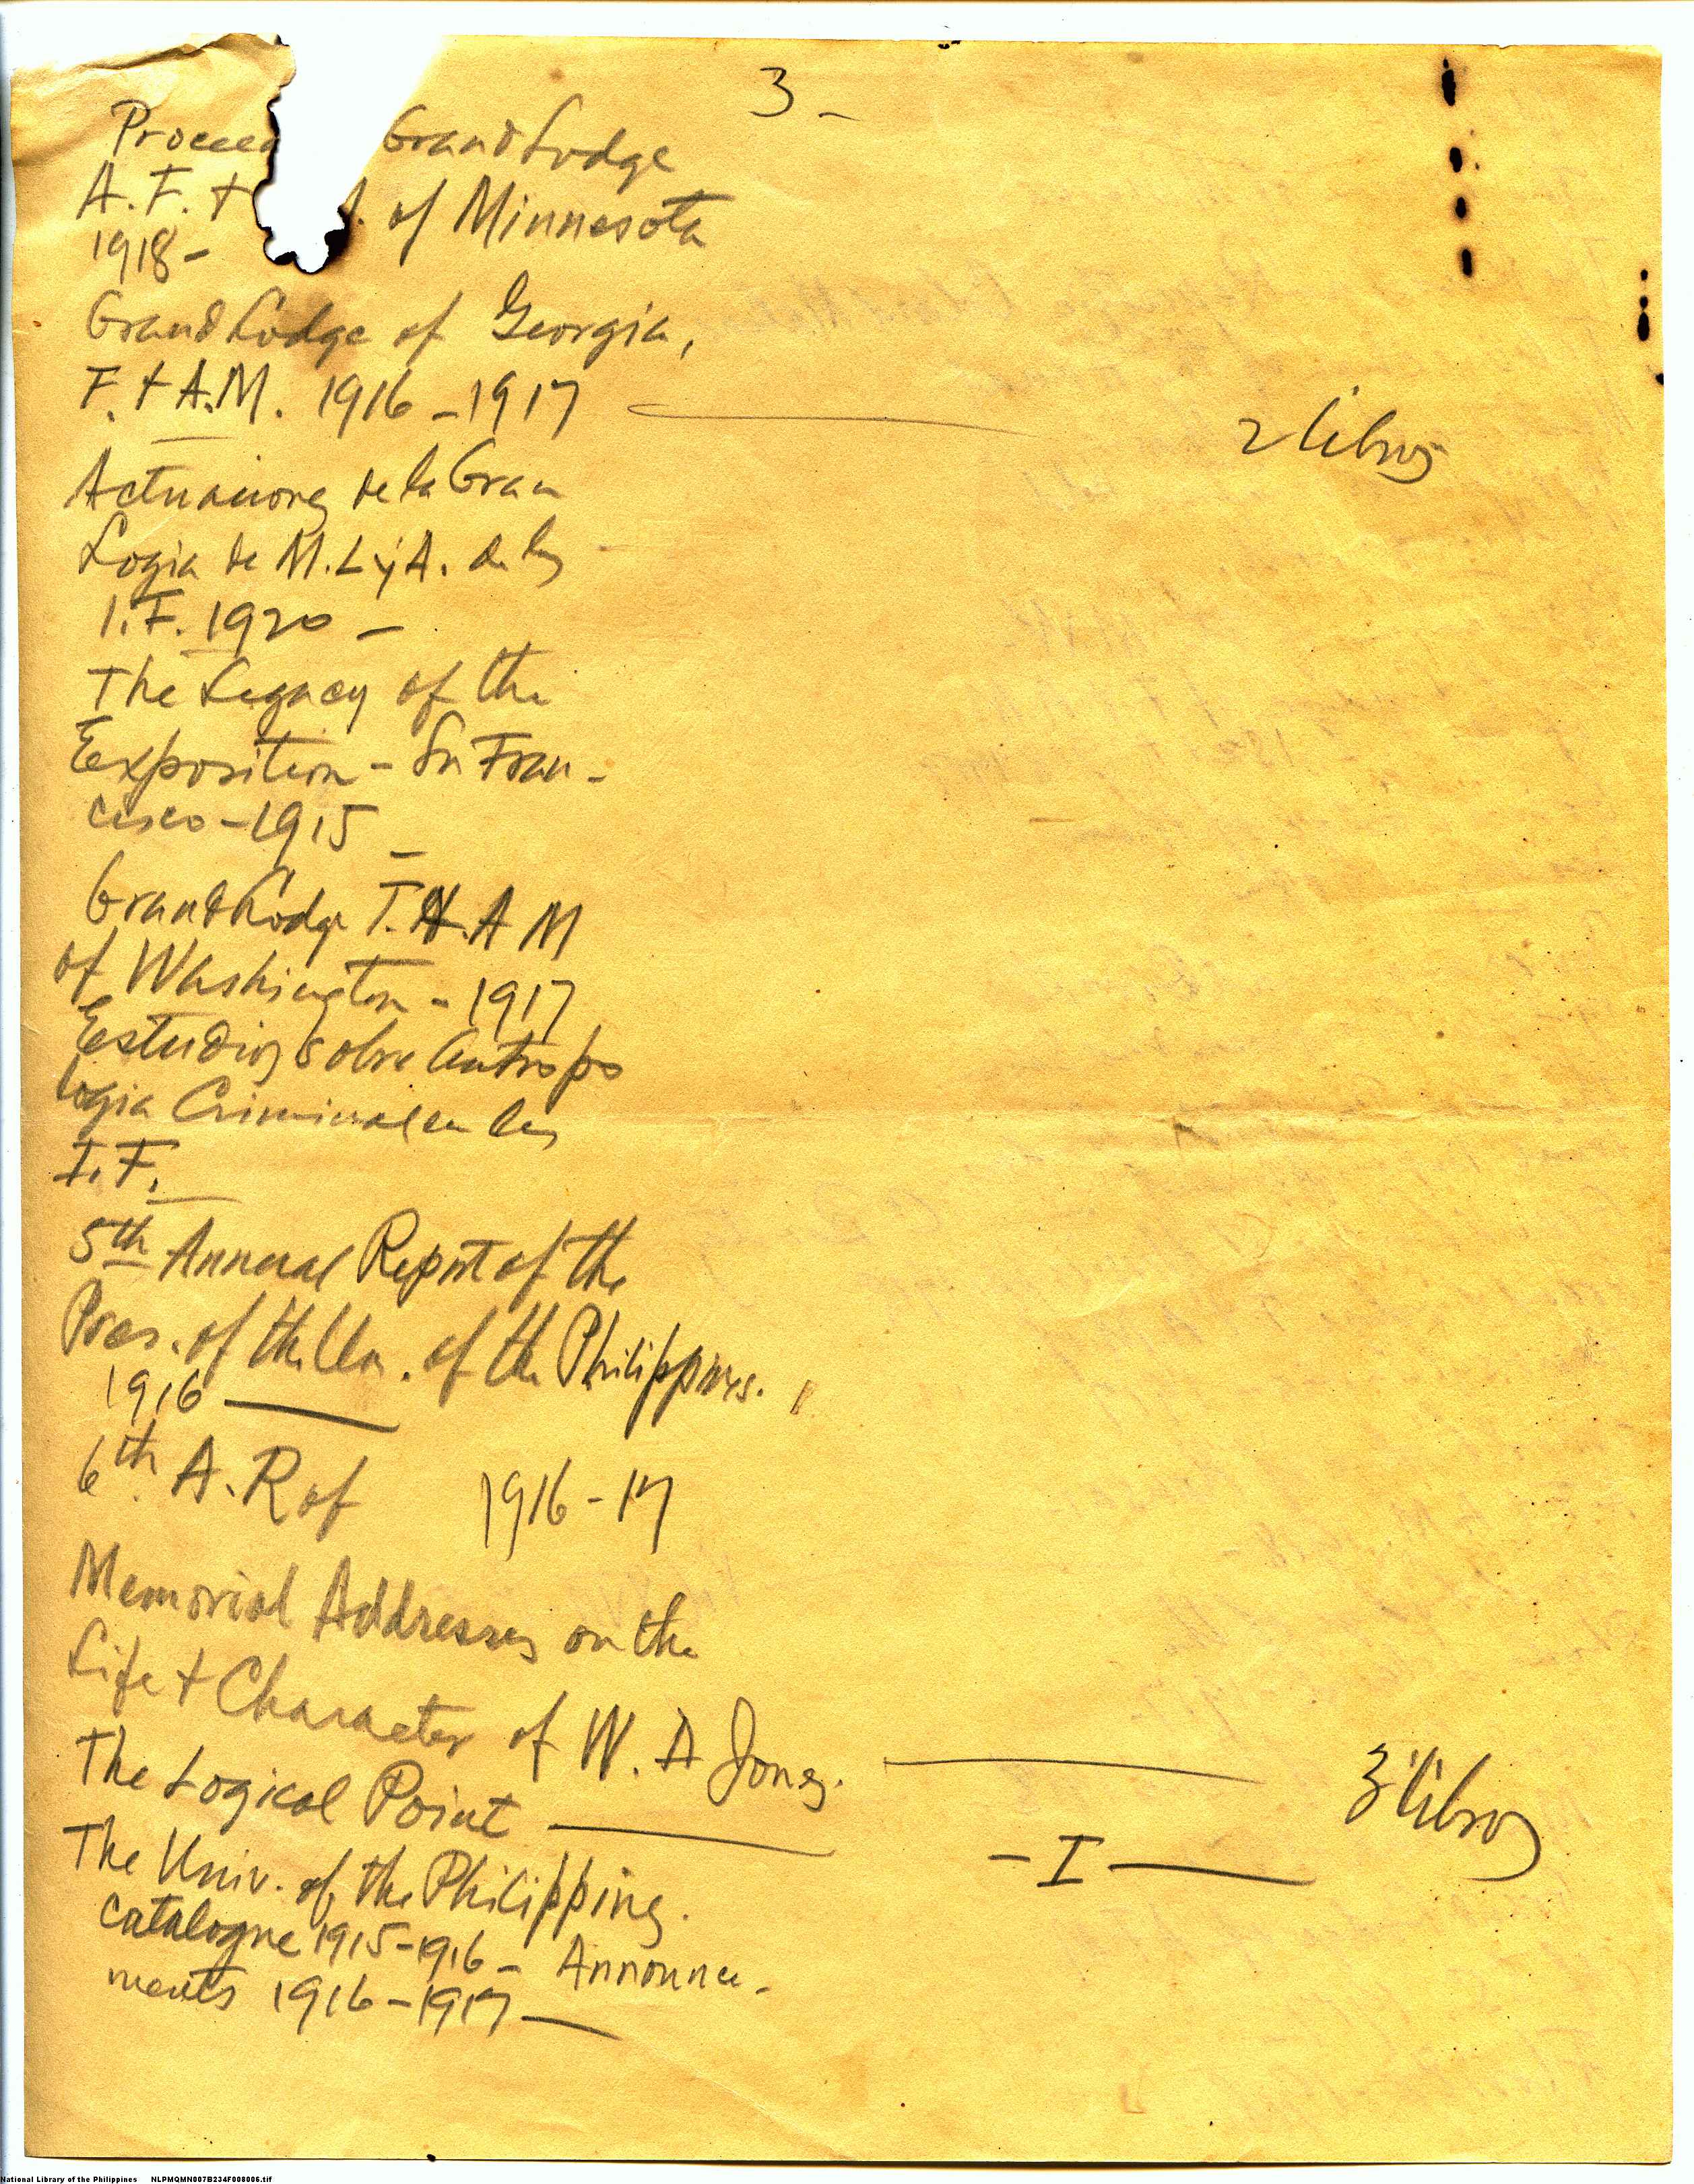 3 -
Proceed Grand Lodge
A. F. + . of Minnesota
1918 -
Grand Lodge of Georgia,
F. + A.M. 1916 - 1917 — 2 libros
Actuaciones de la Gran
Logia de M. L. y A. de las
I. F. 1920 -
The Legacy of the
Exposition - Sn Fran-
cisco - 1915 -
Grand Lodge F. A M
of Washington - 1917
Estudios sobre Antropo
logia Criminal en las
I. F.
5th Annual Report of the
Pres. of the Un. of the Philippines.
1916 —
6th A. R of 1916 - 17
Memorial Addresses on the
Life + Character of W. A Jones. — 3 libros
The Logical Point — - I —
The Univ. of the Philippines.
Catalogue 1915 - 1916 - Announce-
ments 1916 - 1917 —
National Library of the Philippines NLPMQMN007B234F008006.tif